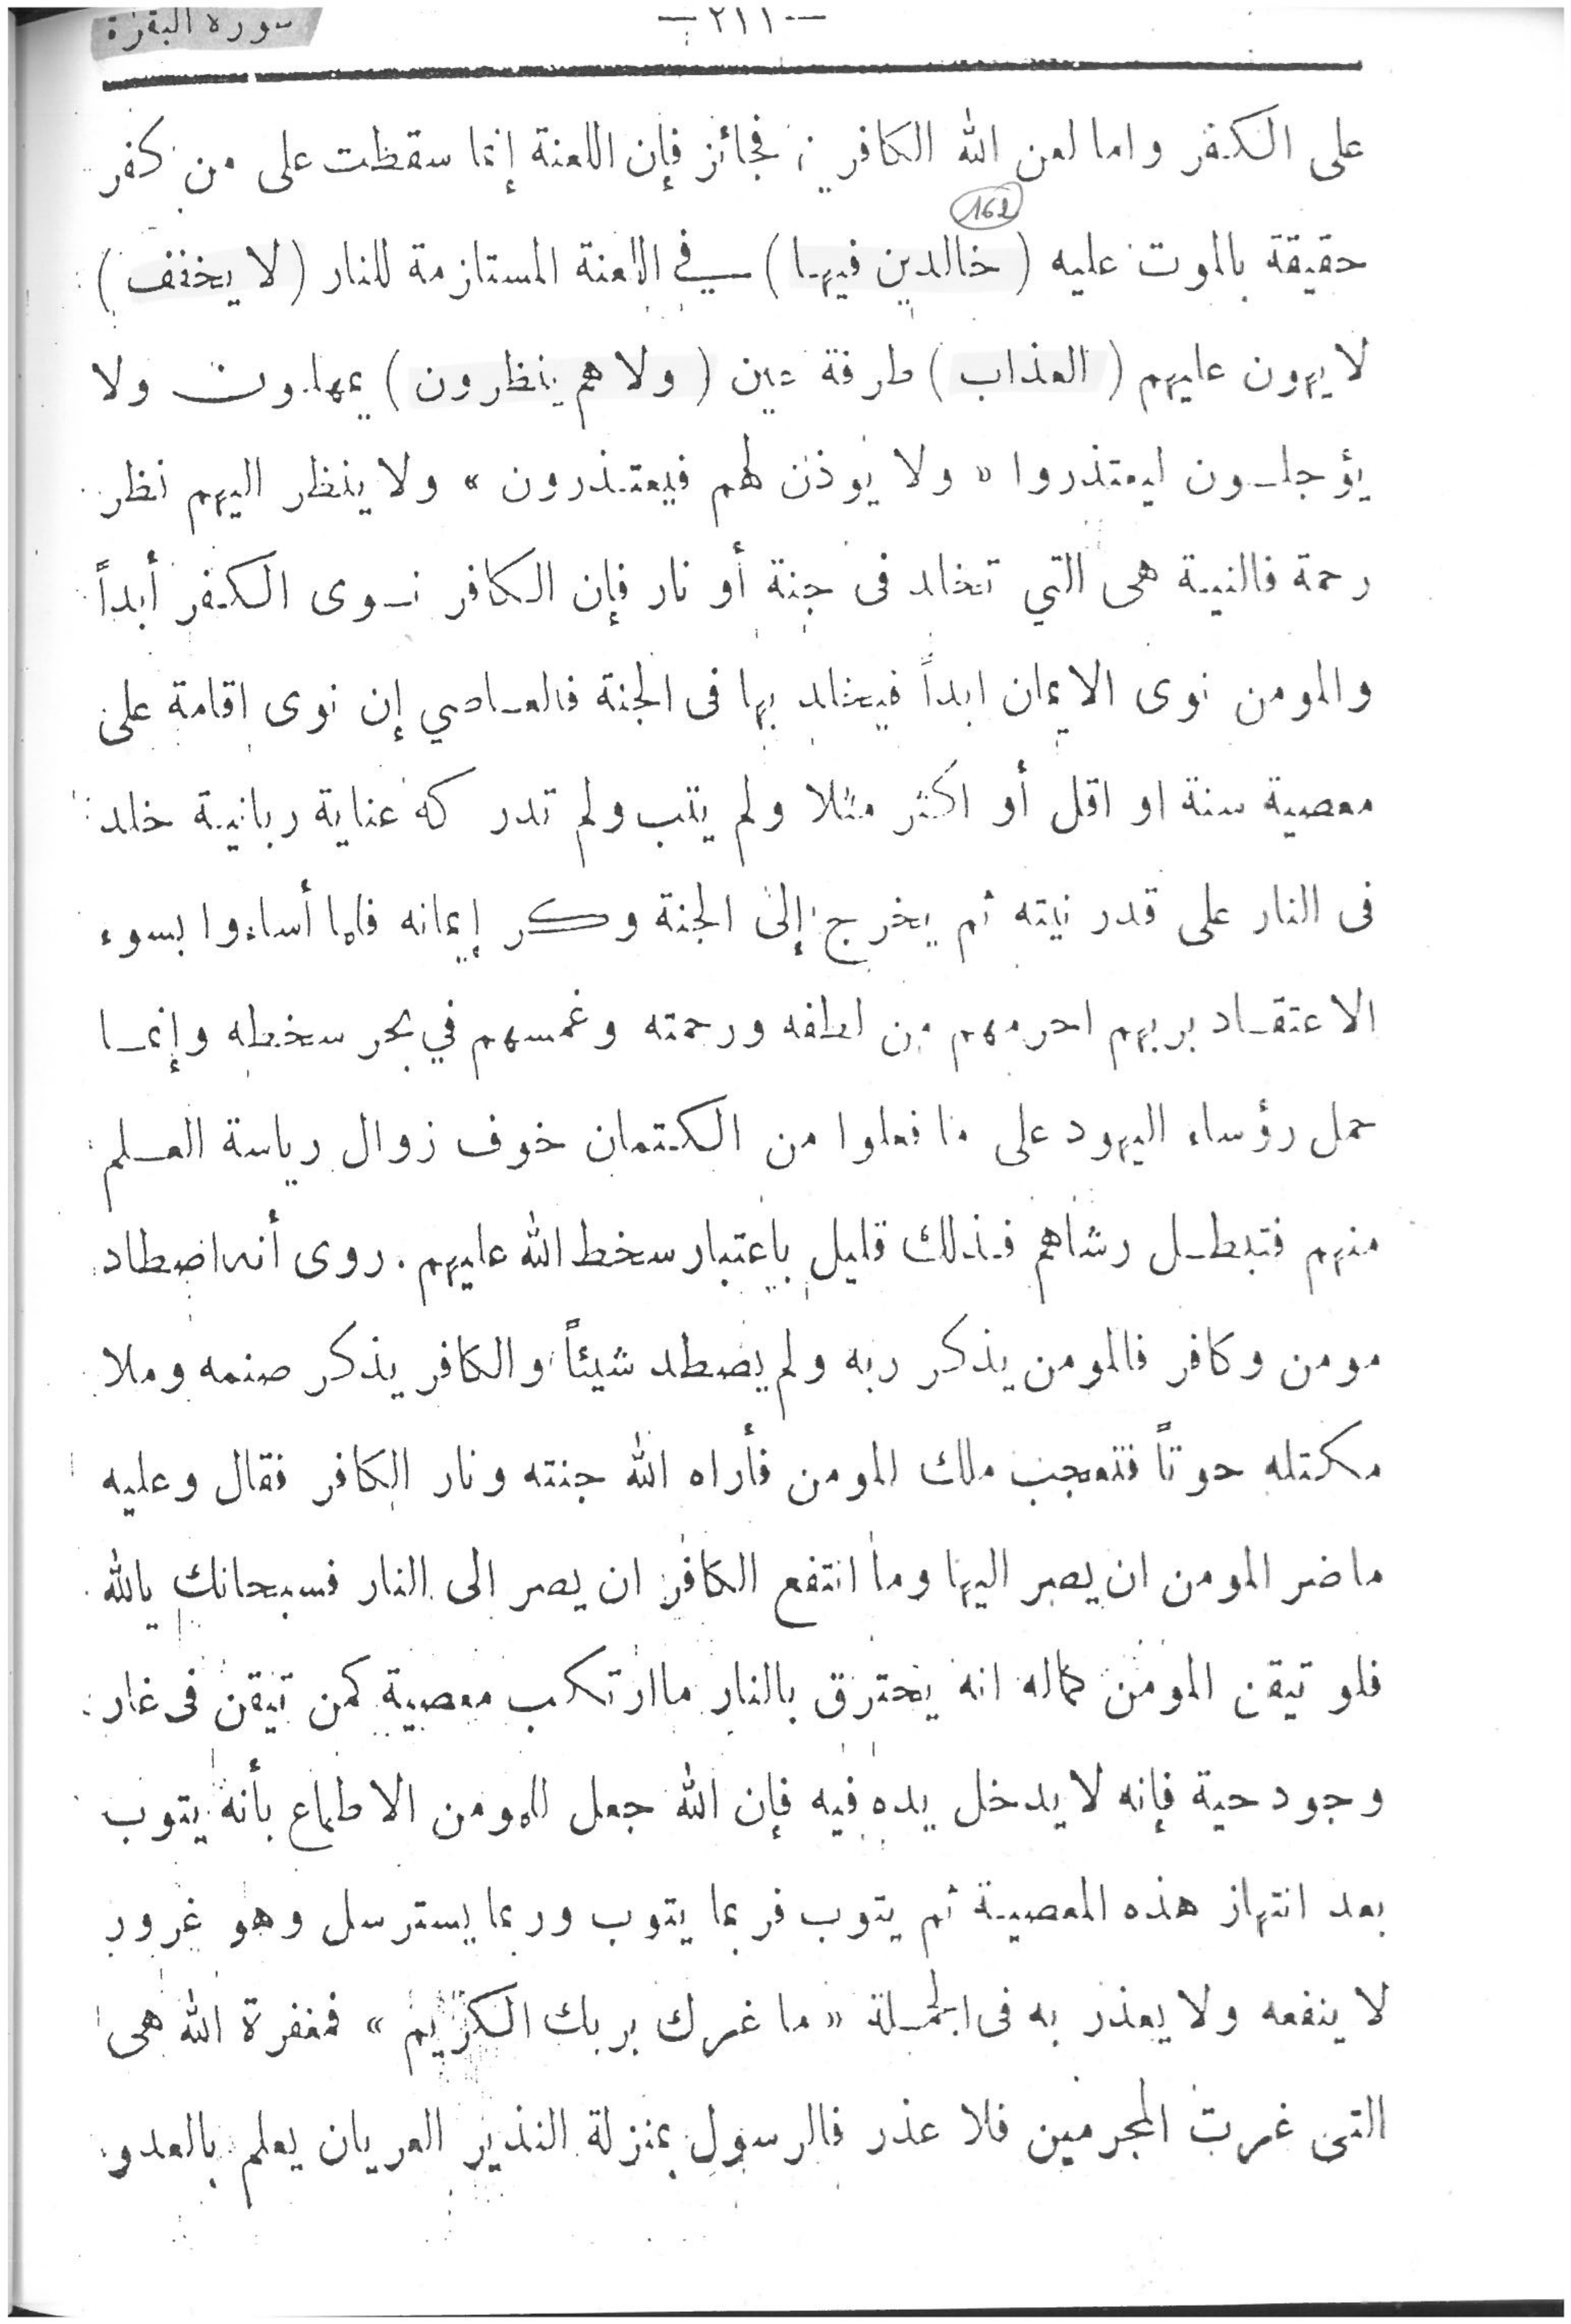 سورة البقرة
— ٢١١ —
على الكفر واما لعن الله الكافرين فجائز فإن اللعنة إنما سقطت على من كفر
162
حقيقة بالموت عليه ( خالدين فيها ) في اللعنة المستلزمة للنار ( لا يخفف )
لا يهون عليهم ( العذاب ) طرفة عين ( ولا هم ينظرون ) يمهلون ولا
يؤجلون ليعتذروا « ولا يوذن لهم فيعتذرون » ولا ينظر اليهم نظر
رحمة فالنية هى التي تخلد فى جنة أو نار فإن الكافر نوى الكفر أبداً
والمومن نوى الايمان ابداً فيخلد بها فى الجنة فالعاصي إن نوى اقامة على
معصية سنة او اقل أو اكثر مثلا ولم يتب ولم تدركه عناية ربانية خلد
فى النار على قدر نيته ثم يخرج إلى الجنة وكر إيمانه فلما أساءوا بسوء
الاعتقاد بربهم احرمهم من لطفه ورحمته وغمسهم في بحر سخطه وإنما
حمل رؤساء اليهود على ما فعلوا من الكتمان خوف زوال رياسة العلم
منهم فتبطل رشاهم فذلك قليل باعتبار سخط الله عليهم . روى أنه اصطاد
مومن وكافر فالمومن يذكر ربه ولم يصطد شيئاً والكافر يذكر صنمه وملا
مكتله حوتاً فتعجب ملك المومن فأراه الله جنته ونار الكافر فقال وعليه
ما ضر المومن ان يصبر اليها وما انتفع الكافر ان يصر الى النار فسبحانك يالله
فلو تيقن المومن كماله انه يحترق بالنار ما ارتكب معصية كمن تيقن فى غار
وجود حية فإنه لا يدخل يده فيه فإن الله جعل للمومن الاطماع بأنه يتوب
بعد انتهاز هذه المعصية ثم يتوب فربما يتوب وربما يسترسل وهو غرور
لا ينفعه ولا يعذر به فى الجملة « ما غرك بربك الكريم » فمغفرة الله هى
التى غرت المجرمين فلا عذر فالرسول بمنزلة النذير العريان يعلم بالعدو